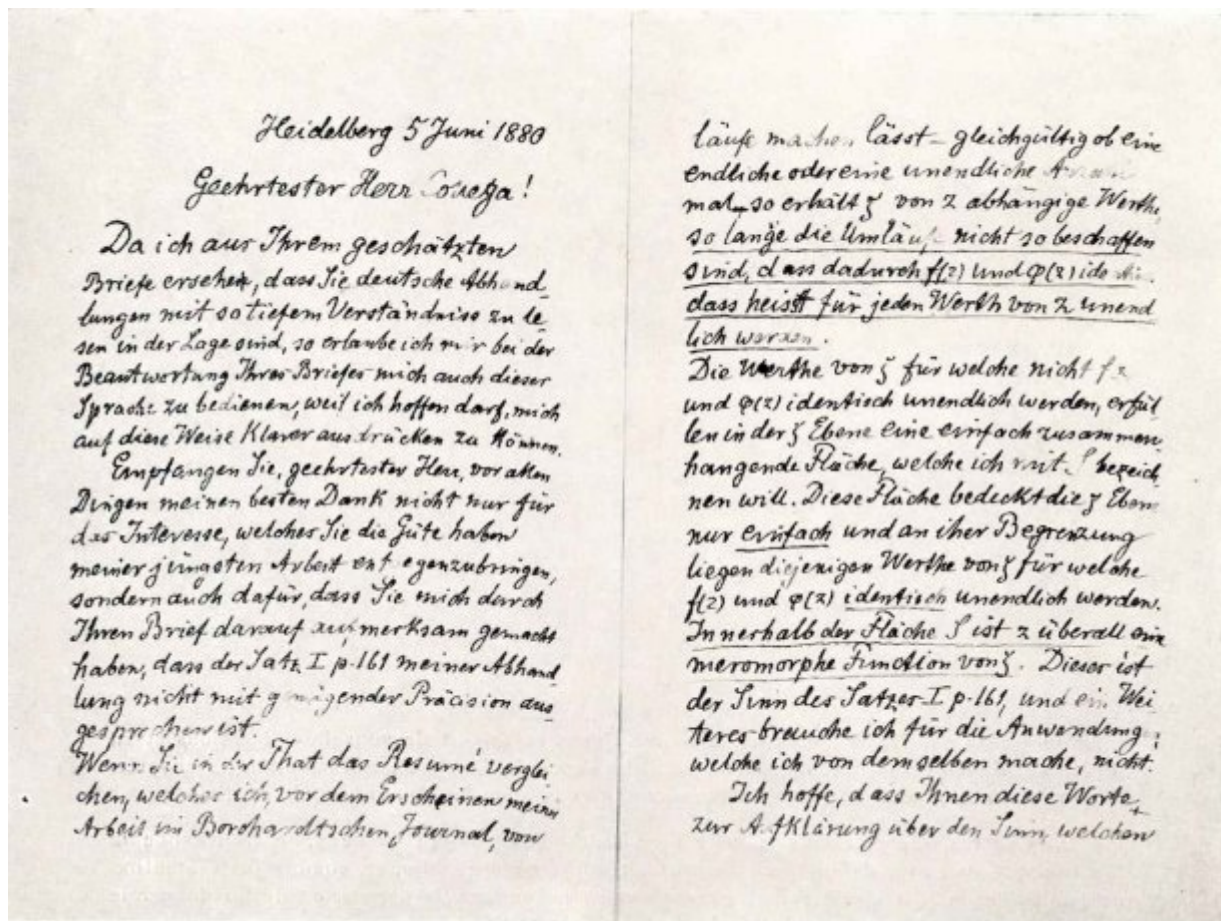 Heidelberg 5 Juni 1880
Geehrtester Herr
Da ich aus Ihrem geschätzten
Briefe ersehen, dass Sie deutsche Abhand_
lungen mit so tiefem Verständniss zu le_
sen in der Lage sind, so erlaube ich mir bei der
Beantwortung Ihres Briefes mich auch dieser
Sprache zu bedienen, weil ich hoffen darf, mich
auf diese Weise klarer ausdrücken zu können.
Empfangen Sie, geehrtester Herr, vor allen
Dingen meinen besten Dank nicht nur für
das Interesse, welches Sie die Güte haben
meiner jüngsten Arbeit entgegenzubringen,
sondern auch dafür, dass Sie mich durch
Ihren Brief darauf aufmerksam gemacht
haben, dass der Satz I p. 161 meiner Abhand_
lung nicht mit genügender Präcision aus
gesprochen ist.
Wenn Sie in der That das Resumé verglei
chen, welches ich, vor dem Erscheinen meiner
Arbeit im Borchardtschen Journal, von
läufe machen lässt – gleichgültig ob eine
endliche oder eine unendliche Anzahl
mal – so erhält ζ von z abhängige Werthe,
so lange die Umläufe nicht so beschaffen
sind, dass dadurch f(z) und φ(z)
dass heisst für jeden Werth von z unend
lich werden.
Die Werthe von ζ für welche nicht f z
und φ(z) identisch unendlich werden, erfül
len in der ζ Ebene eine einfach zusammen
hangende Fläche, welche ich mit S bezeich
nen will. Diese Fläche bedeckt die ζ Ebene
nur einfach und an iher Begrenzung
liegen diejenigen Werthe von ζ für welche
f(z) und φ(z) identisch unendlich werden.
Innerhalb der Fläche S ist z überall eine
meromorphe Function von ζ. Dieses ist
der Sinn des Satzes I p. 161, und ein Wei
teres brauche ich für die Anwendung,
welche ich von demselben mache, nicht.
Ich hoffe, dass Ihnen diese Worte
zur Aufklärung über den Sinn, welchen